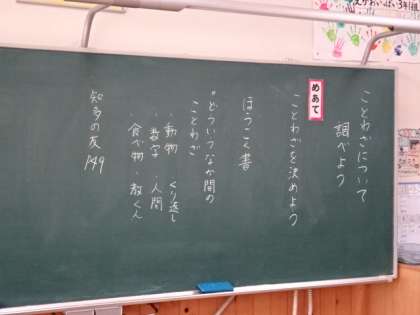 ことわざについて
調べよう
めあて
ことわざを決めよう
ほうこく書
“どういうなか間の
ことわざ
・動物 くり返し
・数字 人間
・食べ物・教くん
知多の友 P49